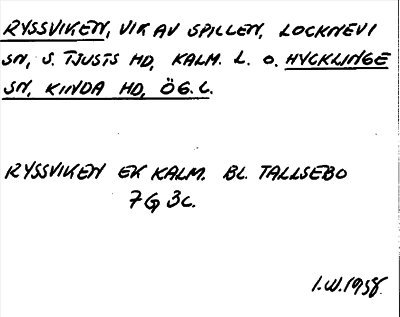 RYSSVIKEN, VIK AV SPILLEN, LOCKNEVI
SN, S. TJUSTS HD, KALM. L. O. HYCKLINGE
SN, KINDA HD, ÖG. L.
RYSSVIKEN EK KALM. BL. TALLSEBO
7G 3c.
I.W.1958.